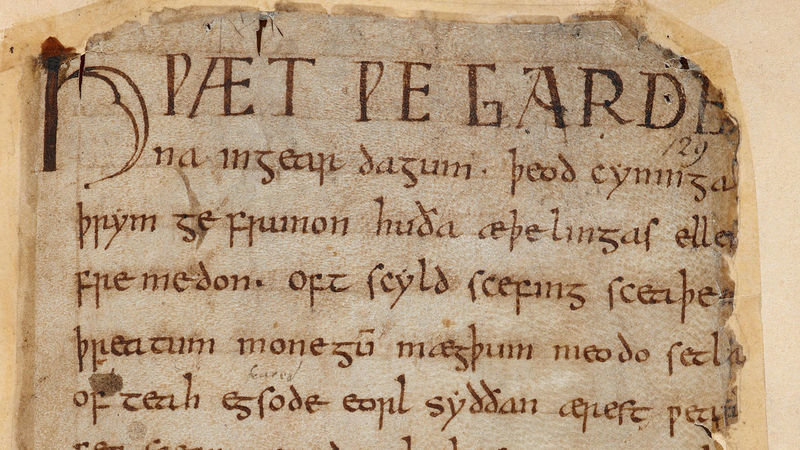 HǷÆT ǷE GARDE
129
na ingear dagum. þeod cyninga
þrym ge frunon huða æþelingas ellen
fre medon. oft scyld scefing sceaþe
þreatum monegū mægþum meodo setla
of teah egsode eorl syððan ærest ƿearð